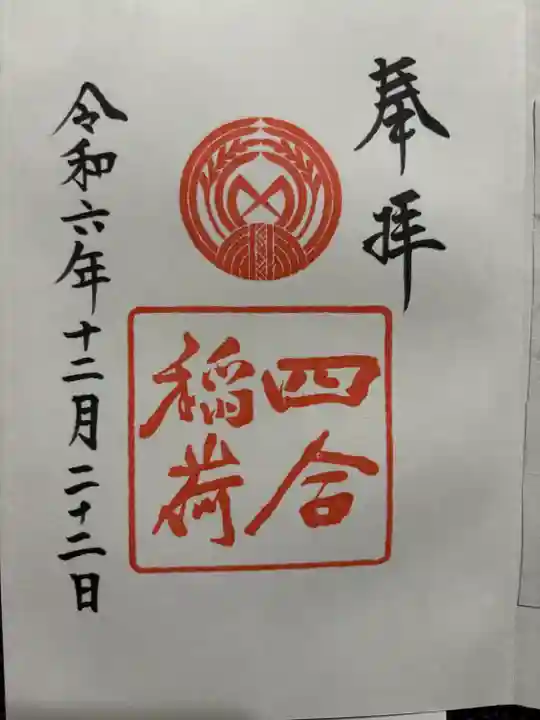 奉拝
四合
稲荷
令和六年十二月二十二日